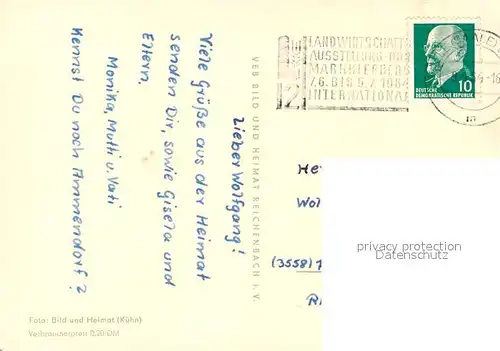 Lieber Wolfgang!
Viele Grüße aus der Heimat
senden Dir, sowie Gisela und
Eltern.
Monika, Mutti u. Vati
Kennst Du noch Ammendorf?
Foto: Bild und Heimat (Kühn)
Verbraucherpreis 0,20 DM
VEB BILD UND HEIMAT REICHENBACH i. V.
LANDWIRTSCHAFTS-
AUSSTELLUNG DDR
MARKKLEEBERG
7.6. BIS 5.7.1964
INTERNATIONAL
DEUTSCHE
DEMOKRATISCHE REPUBLIK
10
He
Wol
(3558)
R
privacy protection
Datenschutz